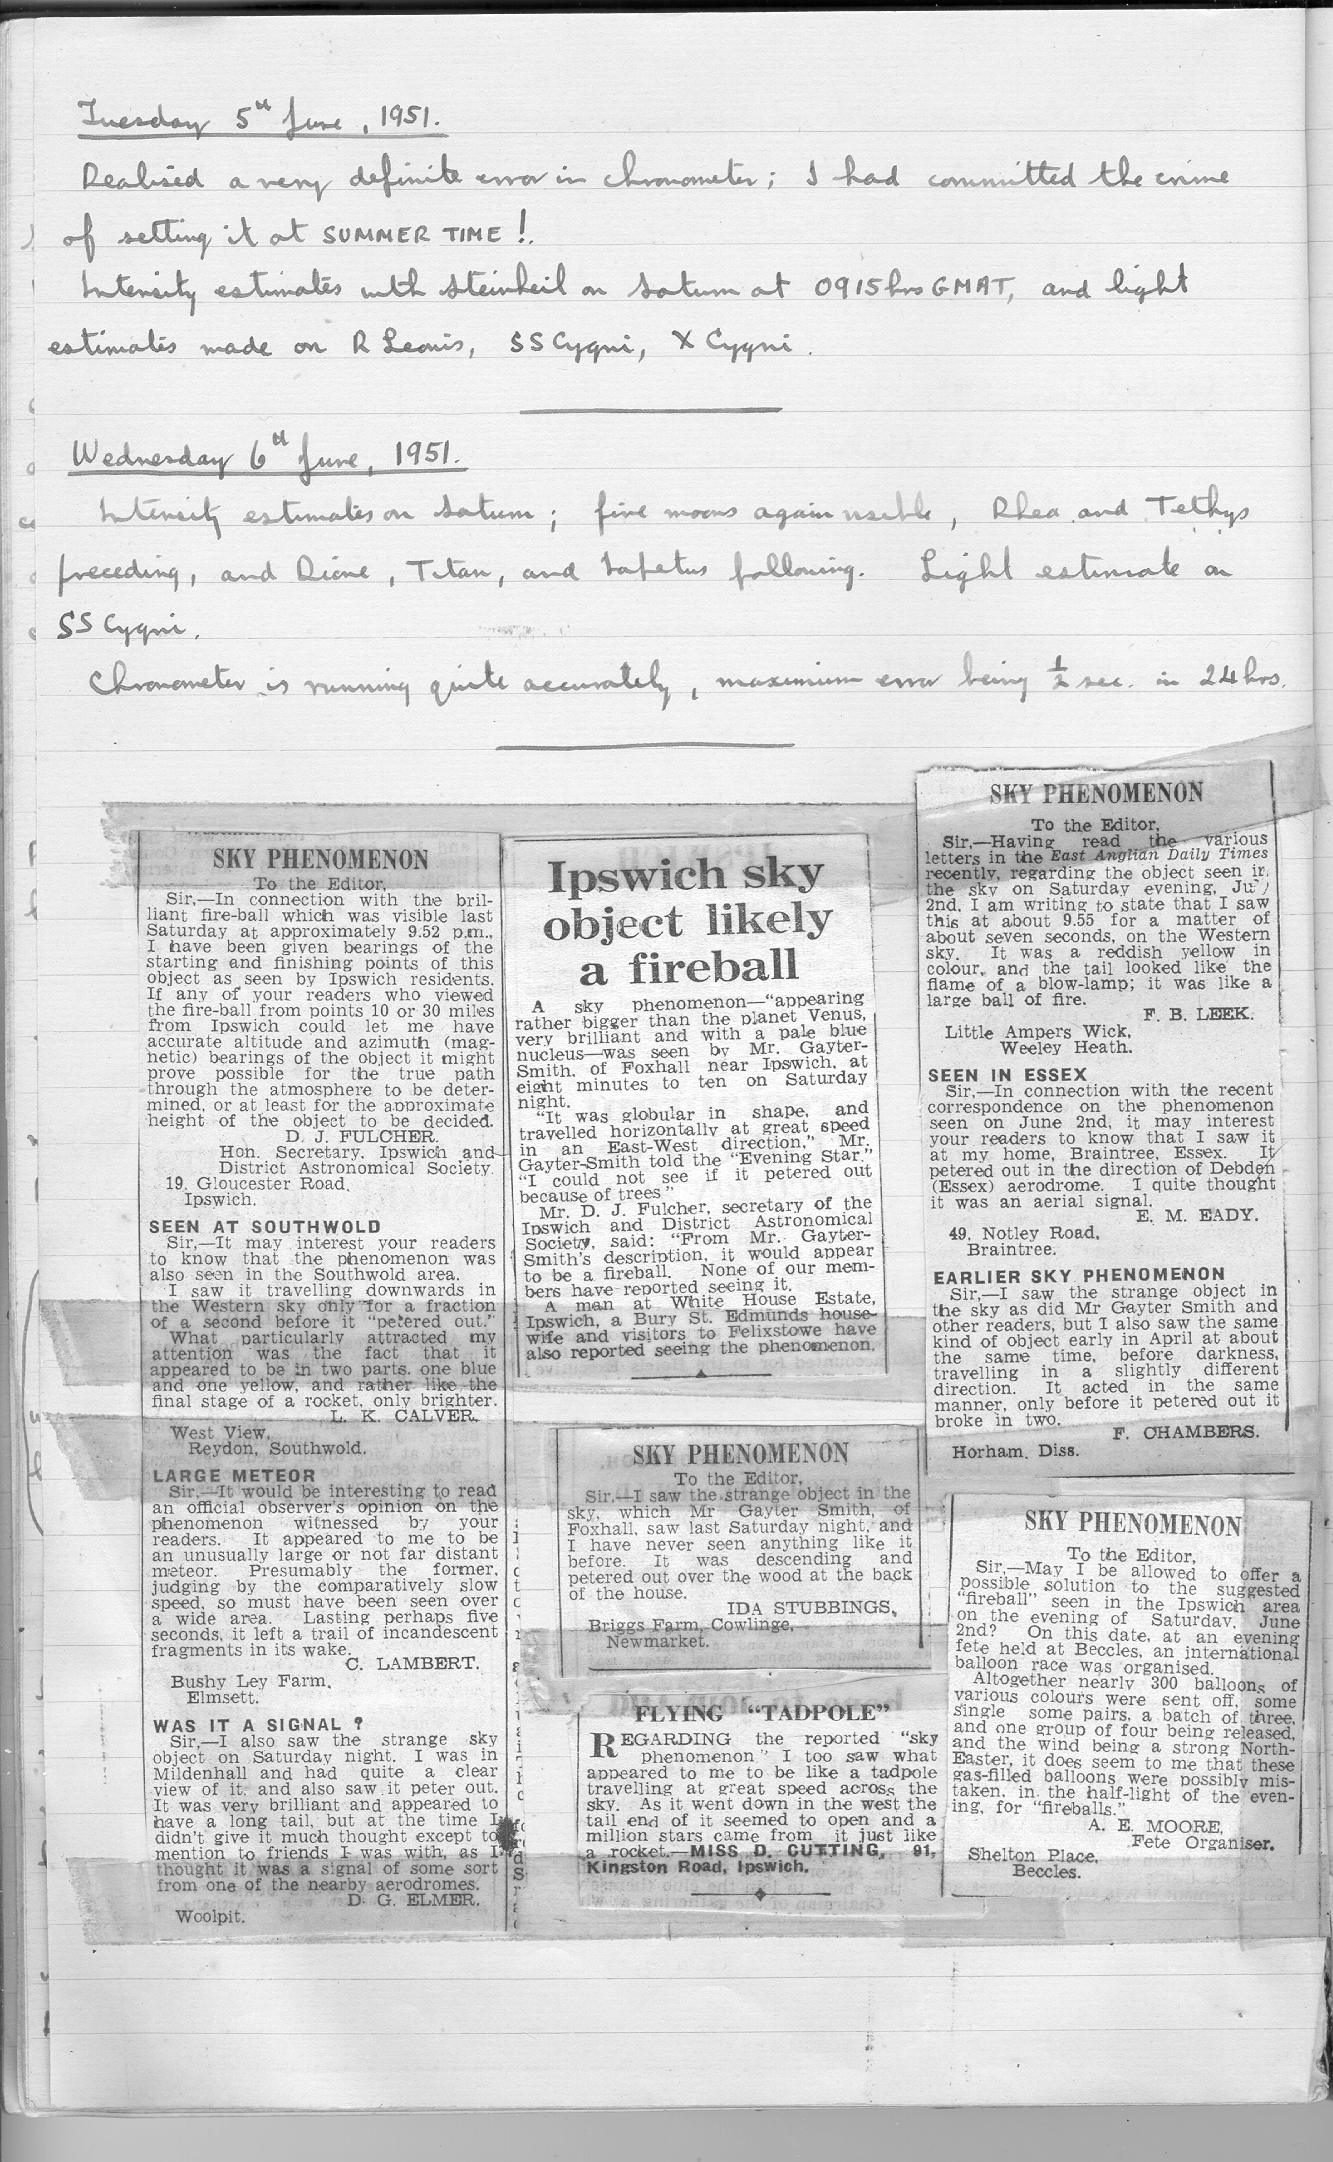 Tuesday 5th June, 1951.
Realised a very definite error in chronometer; I had committed the crime
of setting it at SUMMER TIME!.
Intensity estimates with Steinheil on Saturn at 0915hrs GMAT, and light
estimates made on R Leonis, SS Cygni, X Cygni.
Wednesday 6th June, 1951.
Intensity estimates on Saturn; five moons again visible, Rhea and Tethys
preceding, and Dione, Titan, and Iapetus following. Light estimate on
SS Cygni.
Chronometer is running quite accurately, maximum error being ½ sec. in 24hrs.
SKY PHENOMENON
To the Editor,
Sir,—In connection with the bril-
liant fire-ball which was visible last
Saturday at approximately 9.52 p.m.,
I have been given bearings of the
starting and finishing points of this
object as seen by Ipswich residents.
If any of your readers who viewed
the fire-ball from points 10 or 30 miles
from Ipswich could let me have
accurate altitude and azimuth (mag-
netic) bearings of the object it might
prove possible for the true path
through the atmosphere to be deter-
mined, or at least for the approximate
height of the object to be decided.
D. J. FULCHER.
Hon. Secretary, Ipswich and
District Astronomical Society.
19, Gloucester Road,
Ipswich.
SEEN AT SOUTHWOLD
Sir,—It may interest your readers
to know that the phenomenon was
also seen in the Southwold area.
I saw it travelling downwards in
the Western sky only for a fraction
of a second before it "petered out."
What particularly attracted my
attention was the fact that it
appeared to be in two parts, one blue
and one yellow, and rather like the
final stage of a rocket, only brighter.
L. K. CALVER.
West View,
Reydon, Southwold.
LARGE METEOR
Sir,—It would be interesting to read
an official observer's opinion on the
phenomenon witnessed by your
readers. It appeared to me to be
an unusually large or not far distant
meteor. Presumably the former,
judging by the comparatively slow
speed, so must have been seen over
a wide area. Lasting perhaps five
seconds, it left a trail of incandescent
fragments in its wake.
C. LAMBERT.
Bushy Ley Farm,
Elmsett.
WAS IT A SIGNAL ?
Sir,—I also saw the strange sky
object on Saturday night. I was in
Mildenhall and had quite a clear
view of it, and also saw it peter out.
It was very brilliant and appeared to
have a long tail, but at the time I
didn't give it much thought except to
mention to friends I was with, as I
thought it was a signal of some sort
from one of the nearby aerodromes.
D. G. ELMER.
Woolpit.
Ipswich sky
object likely
a fireball
A sky phenomenon—"appearing
rather bigger than the planet Venus,
very brilliant and with a pale blue
nucleus—was seen by Mr. Gayter-
Smith, of Foxhall near Ipswich, at
eight minutes to ten on Saturday
night.
"It was globular in shape, and
travelled horizontally at great speed
in an East-West direction," Mr.
Gayter-Smith told the "Evening Star."
"I could not see if it petered out
because of trees"
Mr. D. J. Fulcher, secretary of the
Ipswich and District Astronomical
Society, said: "From Mr. Gayter-
Smith's description, it would appear
to be a fireball. None of our mem-
bers have reported seeing it.
A man at White House Estate,
Ipswich, a Bury St. Edmunds house-
wife and visitors to Felixstowe have
also reported seeing the phenomenon.
SKY PHENOMENON
To the Editor,
Sir,—I saw the strange object in the
sky, which Mr Gayter Smith, of
Foxhall, saw last Saturday night, and
I have never seen anything like it
before. It was descending and
petered out over the wood at the back
of the house.
IDA STUBBINGS,
Briggs Farm, Cowlinge,
Newmarket.
FLYING "TADPOLE"
REGARDING the reported "sky
phenomenon" I too saw what
appeared to me to be like a tadpole
travelling at great speed across the
sky. As it went down in the west the
tail end of it seemed to open and a
million stars came from it just like
a rocket.—MISS D. CUTTING, 91,
Kingston Road, Ipswich.
SKY PHENOMENON
To the Editor,
Sir,—Having read the various
letters in the East Anglian Daily Times
recently, regarding the object seen in
the sky on Saturday evening,
2nd, I am writing to state that I saw
this at about 9.55 for a matter of
about seven seconds, on the Western
sky. It was a reddish yellow in
colour, and the tail looked like the
flame of a blow-lamp; it was like a
large ball of fire.
F. B. LEEK.
Little Ampers Wick,
Weeley Heath.
SEEN IN ESSEX
Sir,—In connection with the recent
correspondence on the phenomenon
seen on June 2nd, it may interest
your readers to know that I saw it
at my home, Braintree, Essex. It
petered out in the direction of Debden
(Essex) aerodrome. I quite thought
it was an aerial signal.
E. M. EADY.
49, Notley Road,
Braintree.
EARLIER SKY PHENOMENON
Sir,—I saw the strange object in
the sky as did Mr Gayter Smith and
other readers, but I also saw the same
kind of object early in April at about
the same time, before darkness,
travelling in a slightly different
direction. It acted in the same
manner, only before it petered out it
broke in two.
F. CHAMBERS.
Horham, Diss.
SKY PHENOMENON
To the Editor,
Sir,—May I be allowed to offer a
possible solution to the suggested
"fireball" seen in the Ipswich area
on the evening of Saturday, June
2nd? On this date, at an evening
fete held at Beccles, an international
balloon race was organised.
Altogether nearly 300 balloons of
various colours were sent off, some
single some pairs, a batch of three,
and one group of four being released,
and the wind being a strong North-
Easter, it does seem to me that these
gas-filled balloons were possibly mis-
taken, in the half-light of the even-
ing, for "fireballs."
A. E. MOORE,
Fete Organiser.
Shelton Place,
Beccles.